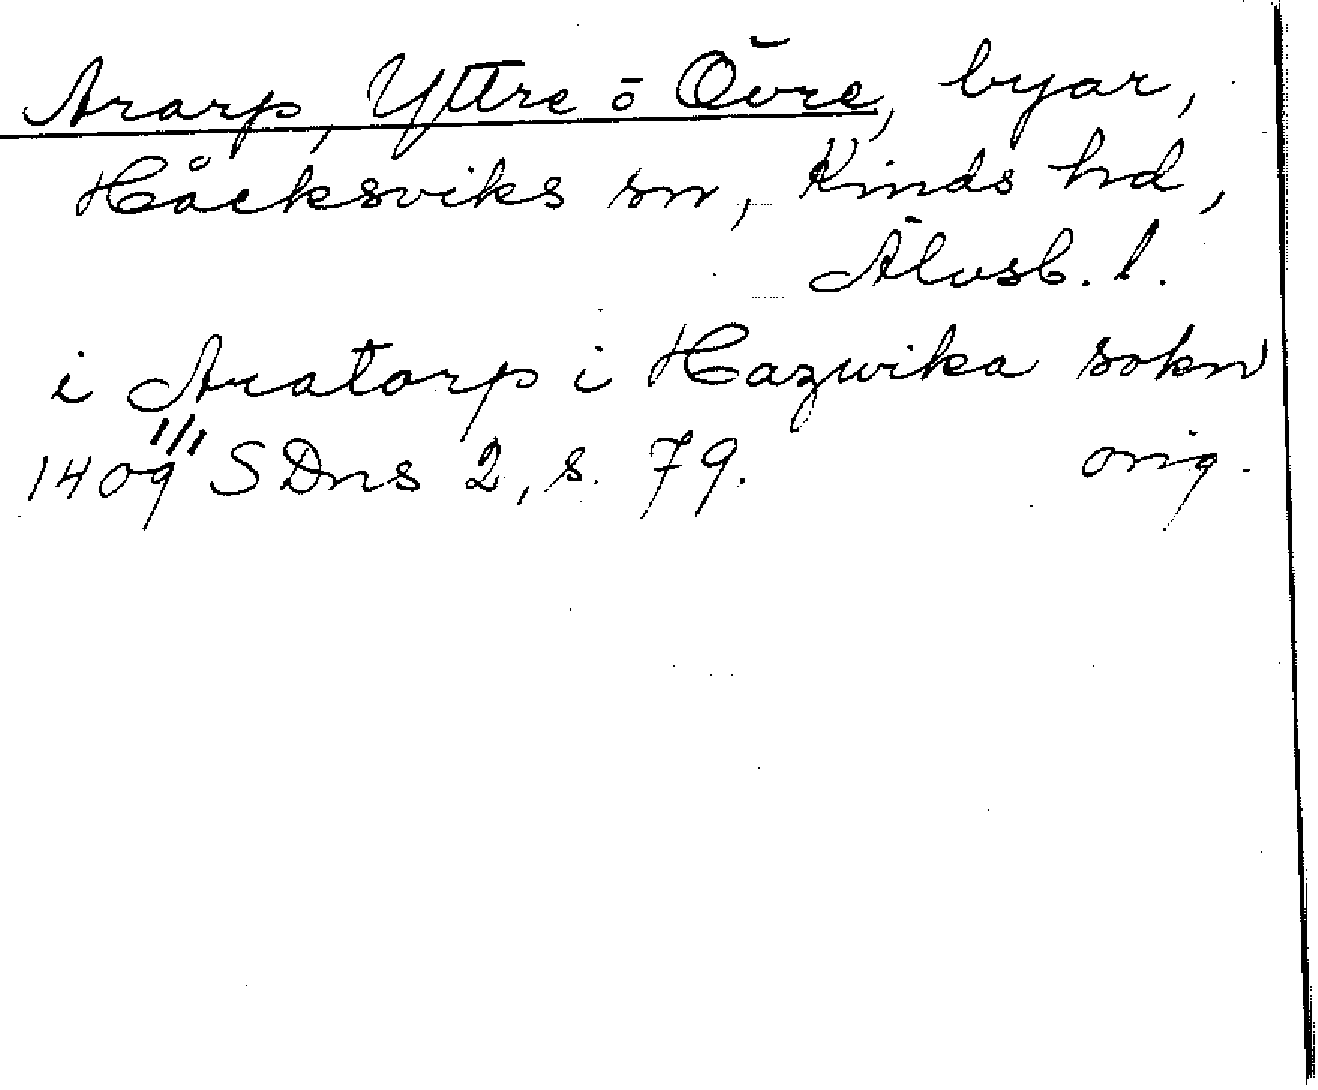 Ararp, Yttre o Övre, byar,
Håcksviks sn, Kinds hd,
Älvsb. l.
i Aratorp i Hazwika sokn
1409 S Dns 2, s. 79. orig.